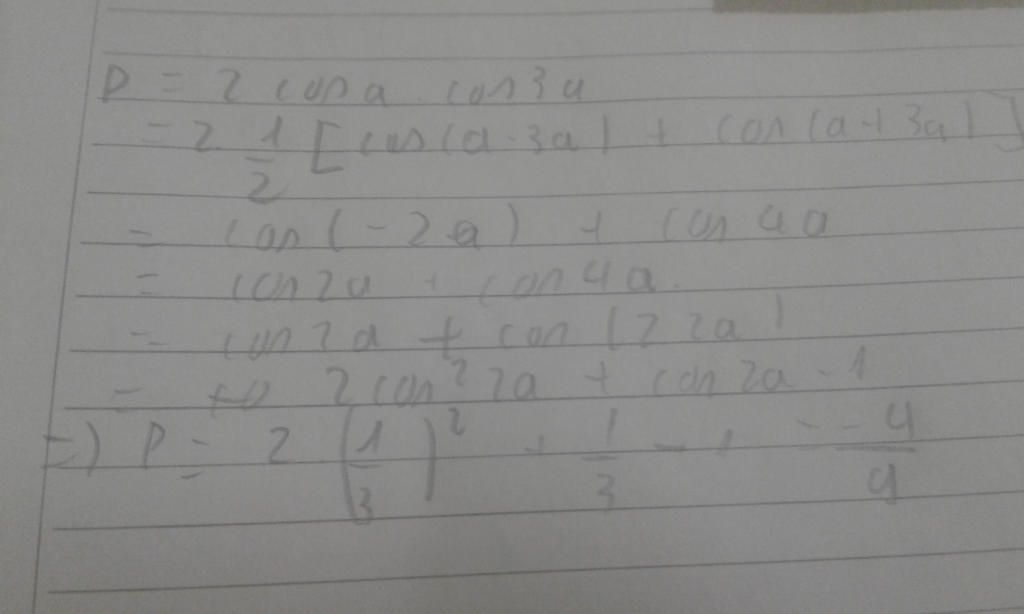 P = 2 cos a . cos 3a
= 2 . 1/2 [ cos (a - 3a) + cos (a + 3a) ]
= cos (-2a) + cos 4a
= cos 2a + cos 4a
= cos 2a + cos (2.2a)
= 2 cos² 2a + cos 2a - 1
=) P = 2 (1/3)² + 1/3 - 1 = -4/9